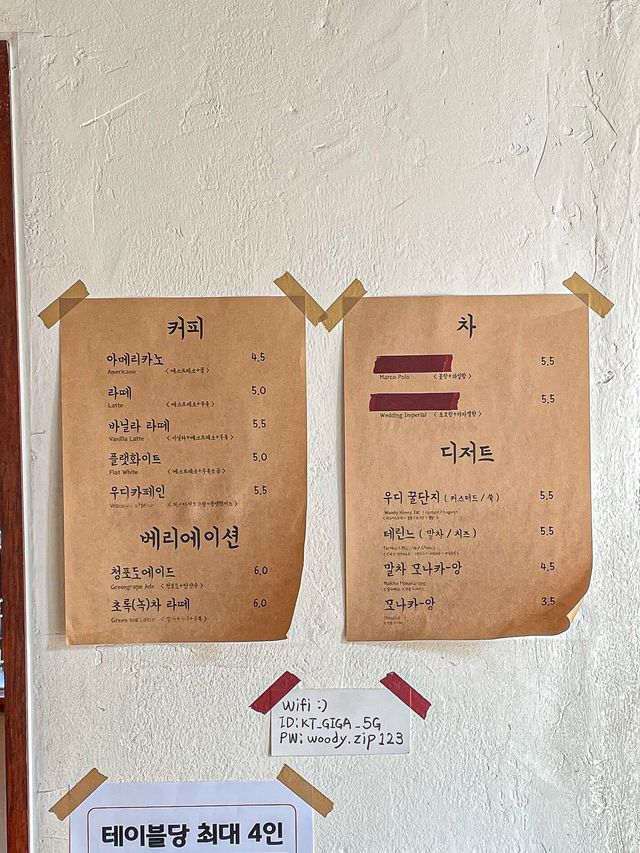 커피
아메리카노 4.5
Americano < 에스프레소+물 >
라떼 5.0
Latte < 에스프레소+우유 >
바닐라 라떼 5.5
Vanilla Latte < 바닐라+에스프레소+우유 >
플랫화이트 5.0
Flat White
우디카페인 5.5
베리에이션
청포도에이드 6.0
Greengrape Ade < 청포도+탄산수 >
초록(녹)차 라떼 6.0
Green tea Latte
차
5.5
Marco Polo < 꽃향+과일향 >
5.5
Wedding Imperial < 초코향+카라멜향 >
디저트
우디 꿀단지 ( 커스터드 / 쑥 ) 5.5
Woody Honey Jar
테린느 ( 말차 / 치즈 ) 5.5
말차 모나카-앙 4.5
모나카-앙 3.5
Monaka
Wifi :)
ID: KT_GIGA_5G
PW: woody.zip123
테이블당 최대 4인